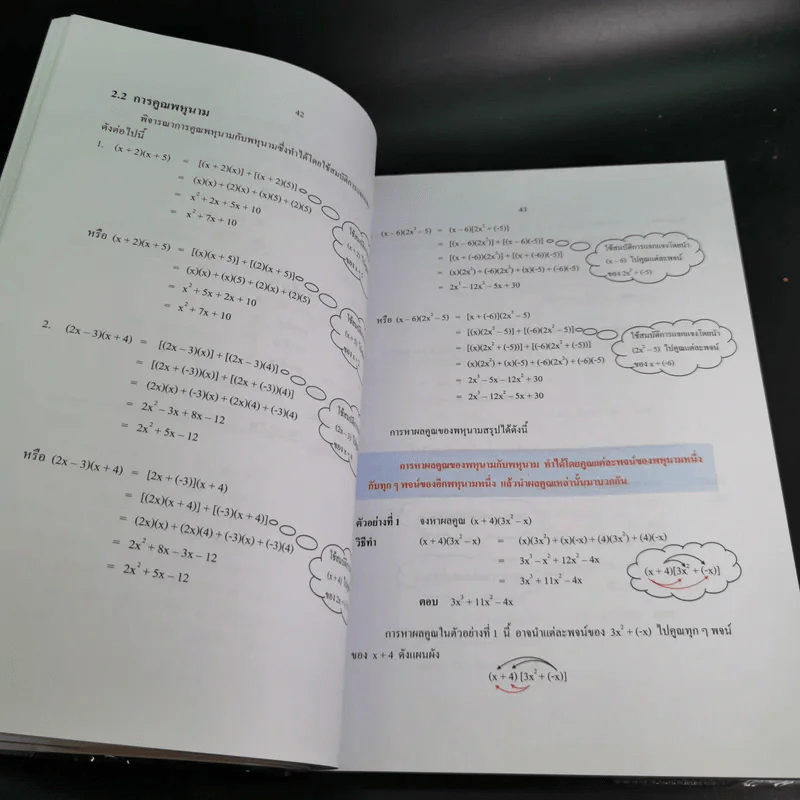 42
2.2 การคูณพหุนาม
พิจารณาการคูณพหุนามกับพหุนามซึ่งทำได้โดยใช้สมบัติการแจกแจง
ดังต่อไปนี้
1. (x + 2)(x + 5) = [(x + 2)(x)] + [(x + 2)(5)]
= (x)(x) + (2)(x) + (x)(5) + (2)(5)
= x² + 2x + 5x + 10
= x² + 7x + 10
หรือ (x + 2)(x + 5) = [(x)(x + 5)] + [(2)(x + 5)]
= (x)(x) + (x)(5) + (2)(x) + (2)(5)
= x² + 5x + 2x + 10
= x² + 7x + 10
2. (2x – 3)(x + 4) = [(2x – 3)(x)] + [(2x – 3)(4)]
= [(2x + (-3))(x)] + [(2x + (-3))(4)]
= (2x)(x) + (-3)(x) + (2x)(4) + (-3)(4)
= 2x² – 3x + 8x – 12
= 2x² + 5x – 12
ใช้สมบัติ
(2x – 3) ไ
หรือ (2x – 3)(x + 4) = [2x + (-3)](x + 4)
= [(2x)(x + 4)] + [(-3)(x + 4)]
= (2x)(x) + (2x)(4) + (-3)(x) + (-3)(4)
= 2x² + 8x – 3x – 12
= 2x² + 5x – 12
ใช้สมบัติ
(x + 4) ไ
ของ 2x +
43
(x – 6)(2x² – 5) = (x – 6)[2x² + (-5)]
= [(x – 6)(2x²)] + [(x – 6)(-5)]
= [(x + (-6))(2x²)] + [(x + (-6))(-5)]
= (x)(2x²) + (-6)(2x²) + (x)(-5) + (-6)(-5)
= 2x³ – 12x² – 5x + 30
ใช้สมบัติการแจกแจงโดยนำ
(x – 6) ไปคูณแต่ละพจน์
ของ 2x² + (-5)
หรือ (x – 6)(2x² – 5) = [x + (-6)](2x² – 5)
= [(x)(2x² – 5)] + [(-6)(2x² – 5)]
= [(x)(2x² + (-5))] + [(-6)(2x² + (-5))]
= (x)(2x²) + (x)(-5) + (-6)(2x²) + (-6)(-5)
= 2x³ – 5x – 12x² + 30
= 2x³ – 12x² – 5x + 30
ใช้สมบัติการแจกแจงโดยนำ
(2x² – 5) ไปคูณแต่ละพจน์
ของ x + (-6)
การหาผลคูณของพหุนามสรุปได้ดังนี้
การหาผลคูณของพหุนามกับพหุนาม ทำได้โดยคูณแต่ละพจน์ของพหุนามหนึ่ง
กับทุก ๆ พจน์ของอีกพหุนามหนึ่ง แล้วนำผลคูณเหล่านั้นมาบวกกัน
ตัวอย่างที่ 1 จงหาผลคูณ (x + 4)(3x² – x)
วิธีทำ (x + 4)(3x² – x) = (x)(3x²) + (x)(-x) + (4)(3x²) + (4)(-x)
= 3x³ – x² + 12x² – 4x
= 3x³ + 11x² – 4x
(x + 4)[3x² + (-x)]
ตอบ 3x³ + 11x² – 4x
การหาผลคูณในตัวอย่างที่ 1 นี้ อาจนำแต่ละพจน์ของ 3x² + (-x) ไปคูณทุก ๆ พจน์
ของ x + 4 ดังแผนผัง
(x + 4) [3x² + (-x)]